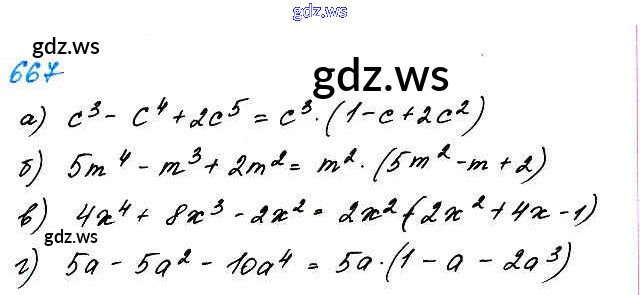 gdz.ws
gdz.ws
667
gdz.ws
а) c³ - c⁴ + 2c⁵ = c³ · (1 - c + 2c²)
б) 5m⁴ - m³ + 2m² = m² · (5m² - m + 2)
в) 4x⁴ + 8x³ - 2x² = 2x² · (2x² + 4x - 1)
gdz.ws
г) 5a - 5a² - 10a⁴ = 5a · (1 - a - 2a³)